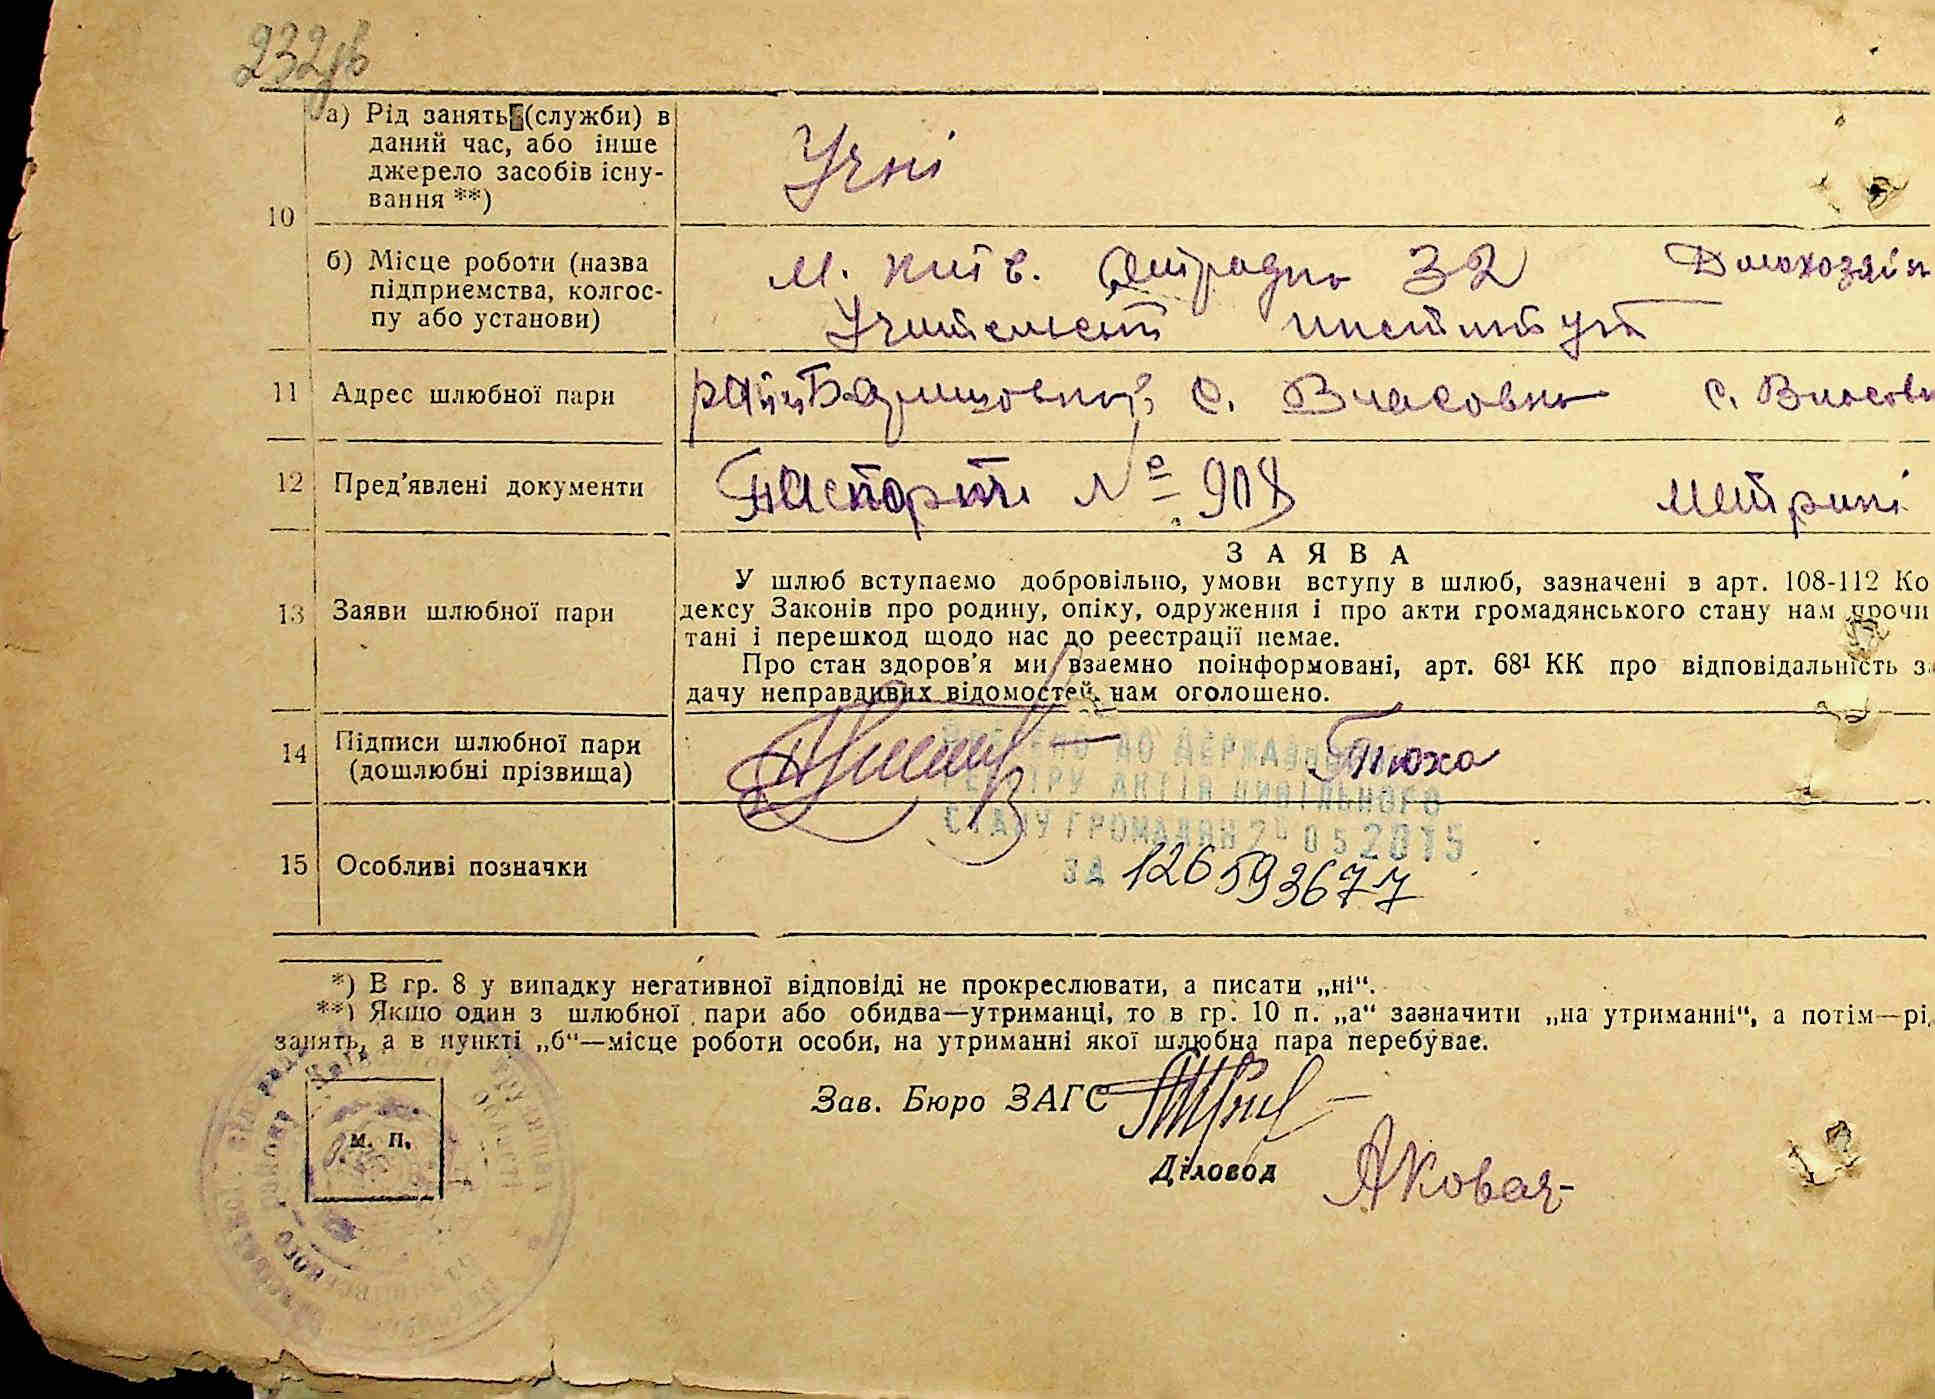 232
а) Рід занять (служби) в
даний час, або інше
джерело засобів існу-
вання **)
Учні
10
б) Місце роботи (назва
підприємства, колгос-
пу або установи)
м. Київ. 32
Учительськ институт
11 Адрес шлюбної пари
с. Власовка с. Власовк
12 Пред'явлені документи
Паспорт № 908 метрикі
ЗАЯВА
13 Заяви шлюбної пари
У шлюб вступаємо добровільно, умови вступу в шлюб, зазначені в арт. 108-112 Ко
дексу Законів про родину, опіку, одруження і про акти громадянського стану нам прочи
тані і перешкод щодо нас до реєстрації немає.
Про стан здоров'я ми взаємно поінформовані, арт. 68¹ КК про відповідальність за
дачу неправдивих відомостей нам оголошено.
14 Підписи шлюбної пари
(дошлюбні прізвища)
Тюха
ДО ДЕРЖАВНОГО
РЕЄСТРУ АКТІВ ЦИВІЛЬНОГО
СТАНУ ГРОМАДЯН 05 2015
ЗА 126593677
15 Особливі позначки
*) В гр. 8 у випадку негативної відповіді не прокреслювати, а писати „ні“.
**) Якщо один з шлюбної пари або обидва—утриманці, то в гр. 10 п. „а“ зазначити „на утриманні“, а потім—рі
занять, а в пункті „б“—місце роботи особи, на утриманні якої шлюбна пара перебуває.
Зав. Бюро ЗАГС
м. п.
Діловод АКовач